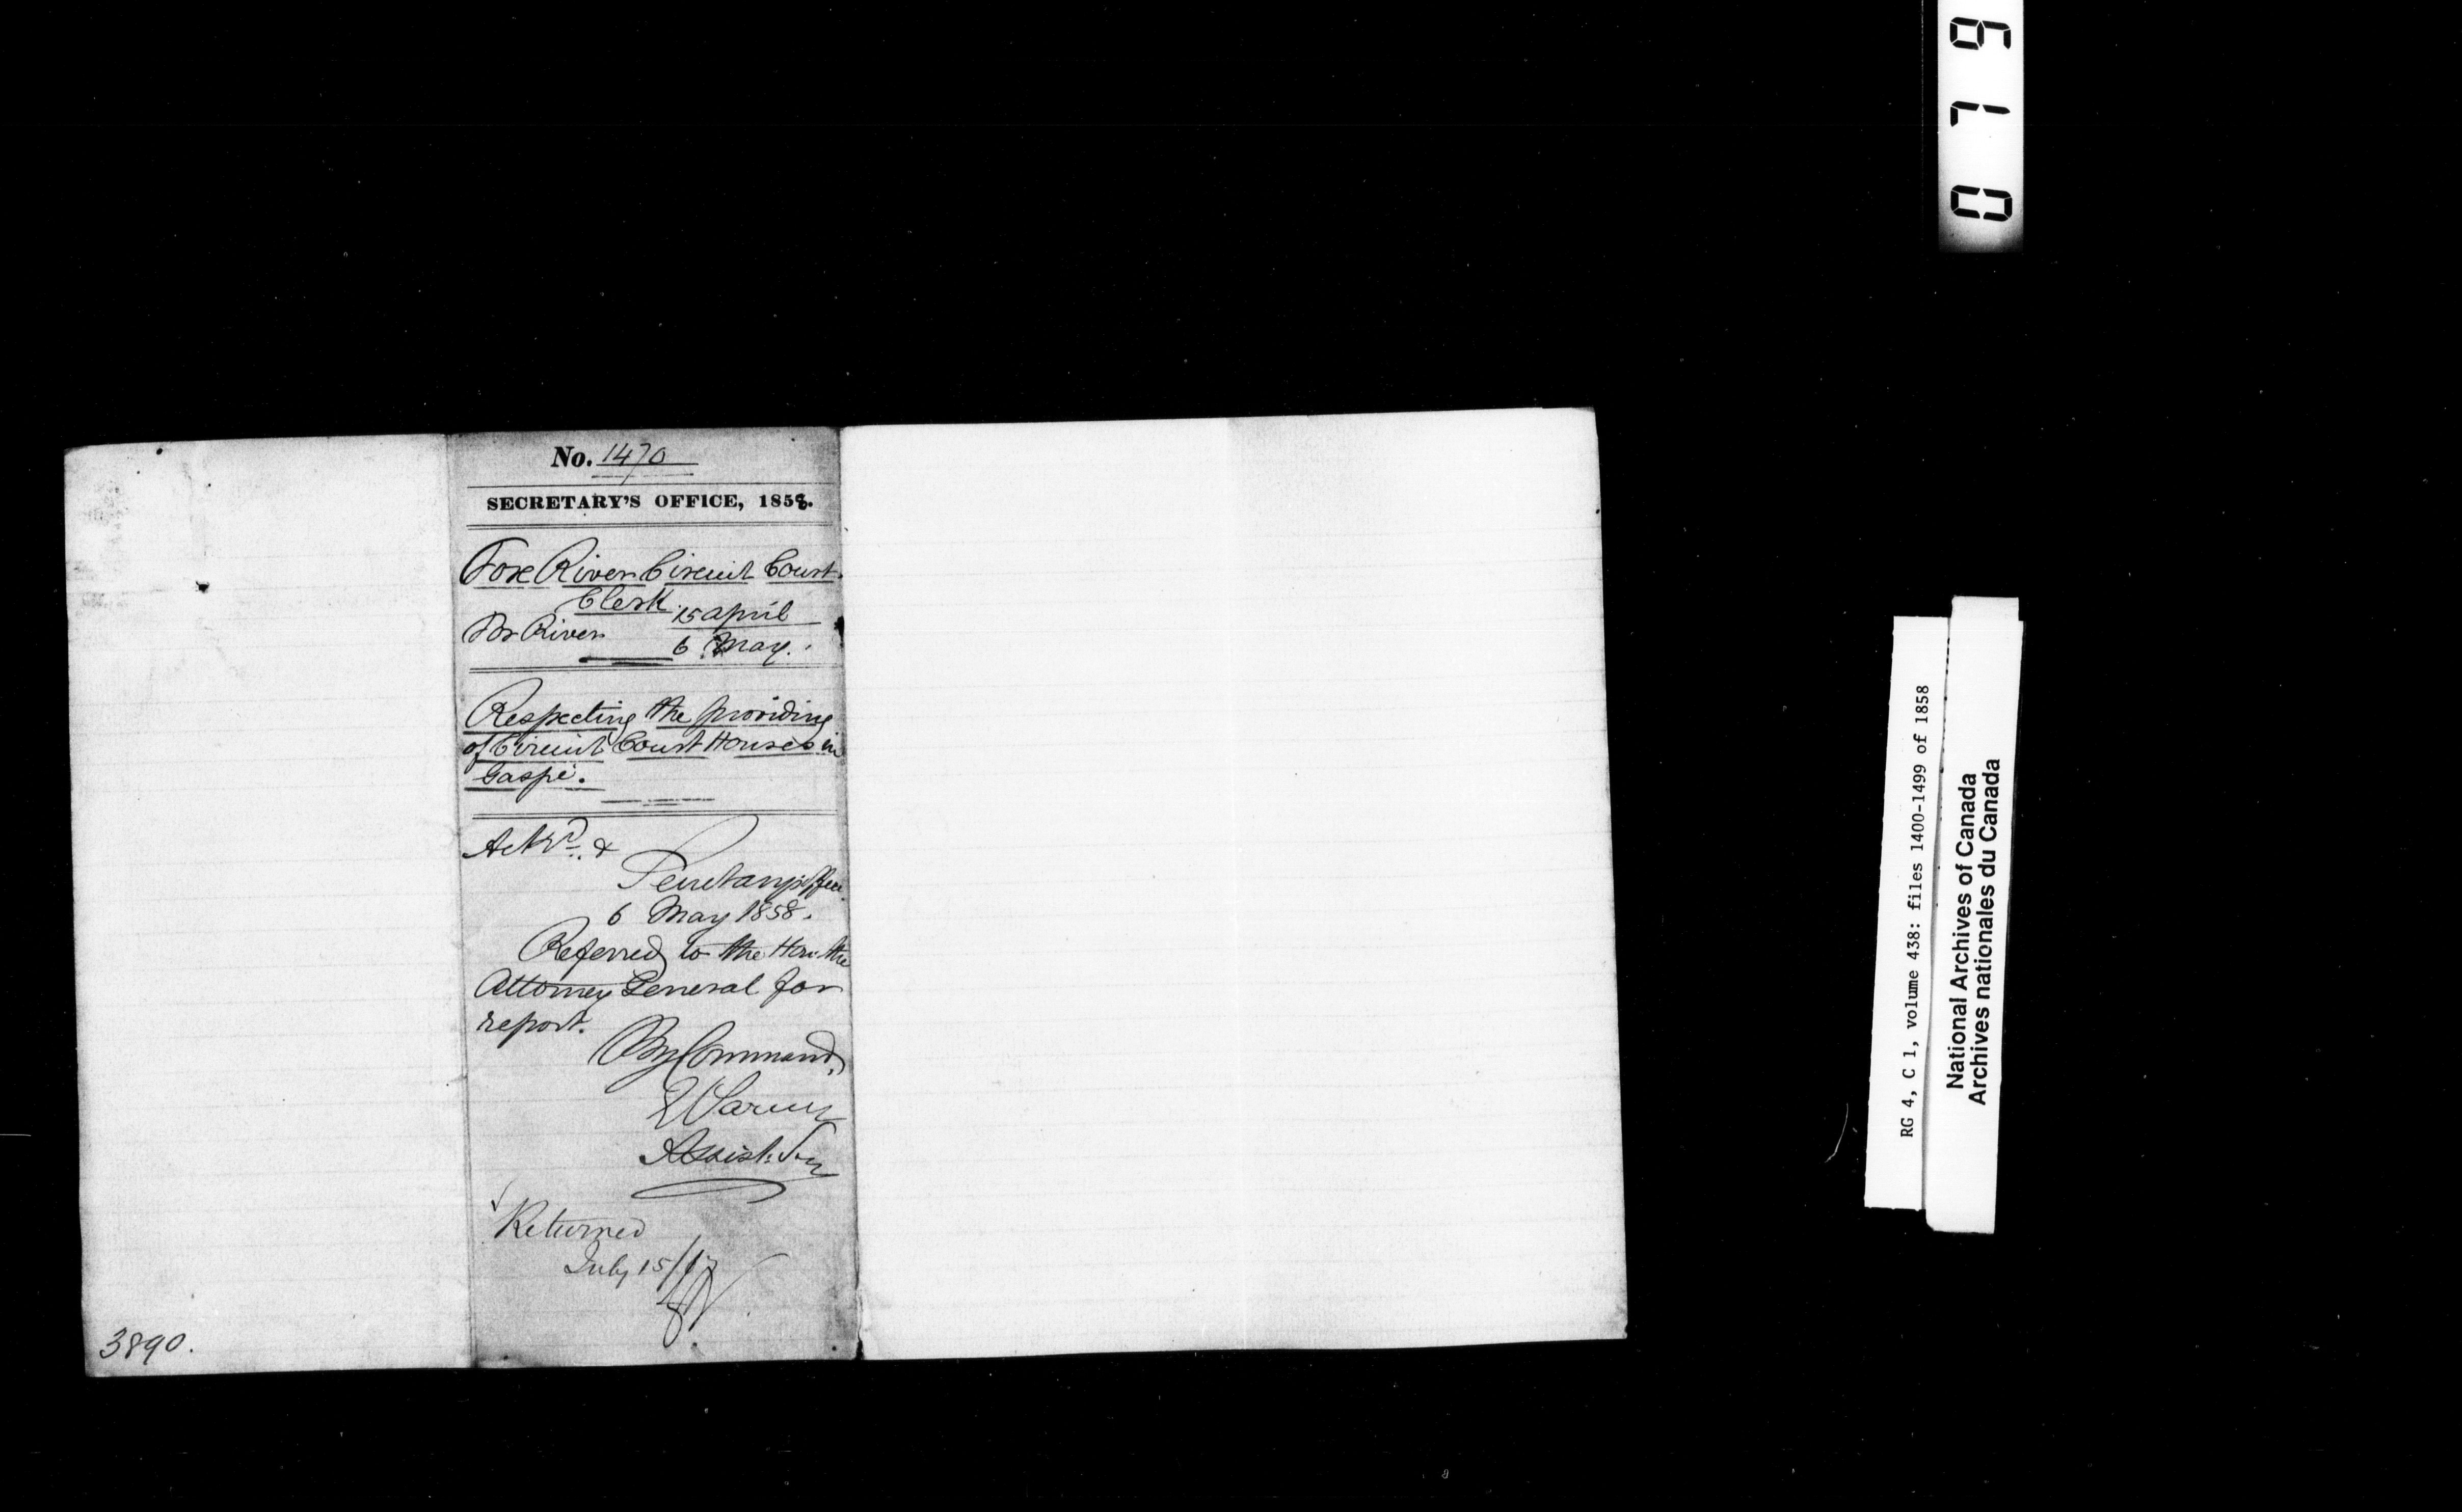 No. 1470
SECRETARY'S OFFICE, 1858.
Fox River Circuit Court
Clerk.
15 April
Fox River
6 May.
Respecting the providing
of Circuit Court Houses in
Gaspé.
Ackd. &
Secretary's Office
6 May 1858.
Referred to the Hon. the
Attorney General for
report.
By Command,
Assist. Secy
Returned
July 15/
3890.
0719
RG 4, C 1, volume 438: files 1400-1499 of 1858
National Archives of Canada
Archives nationales du Canada